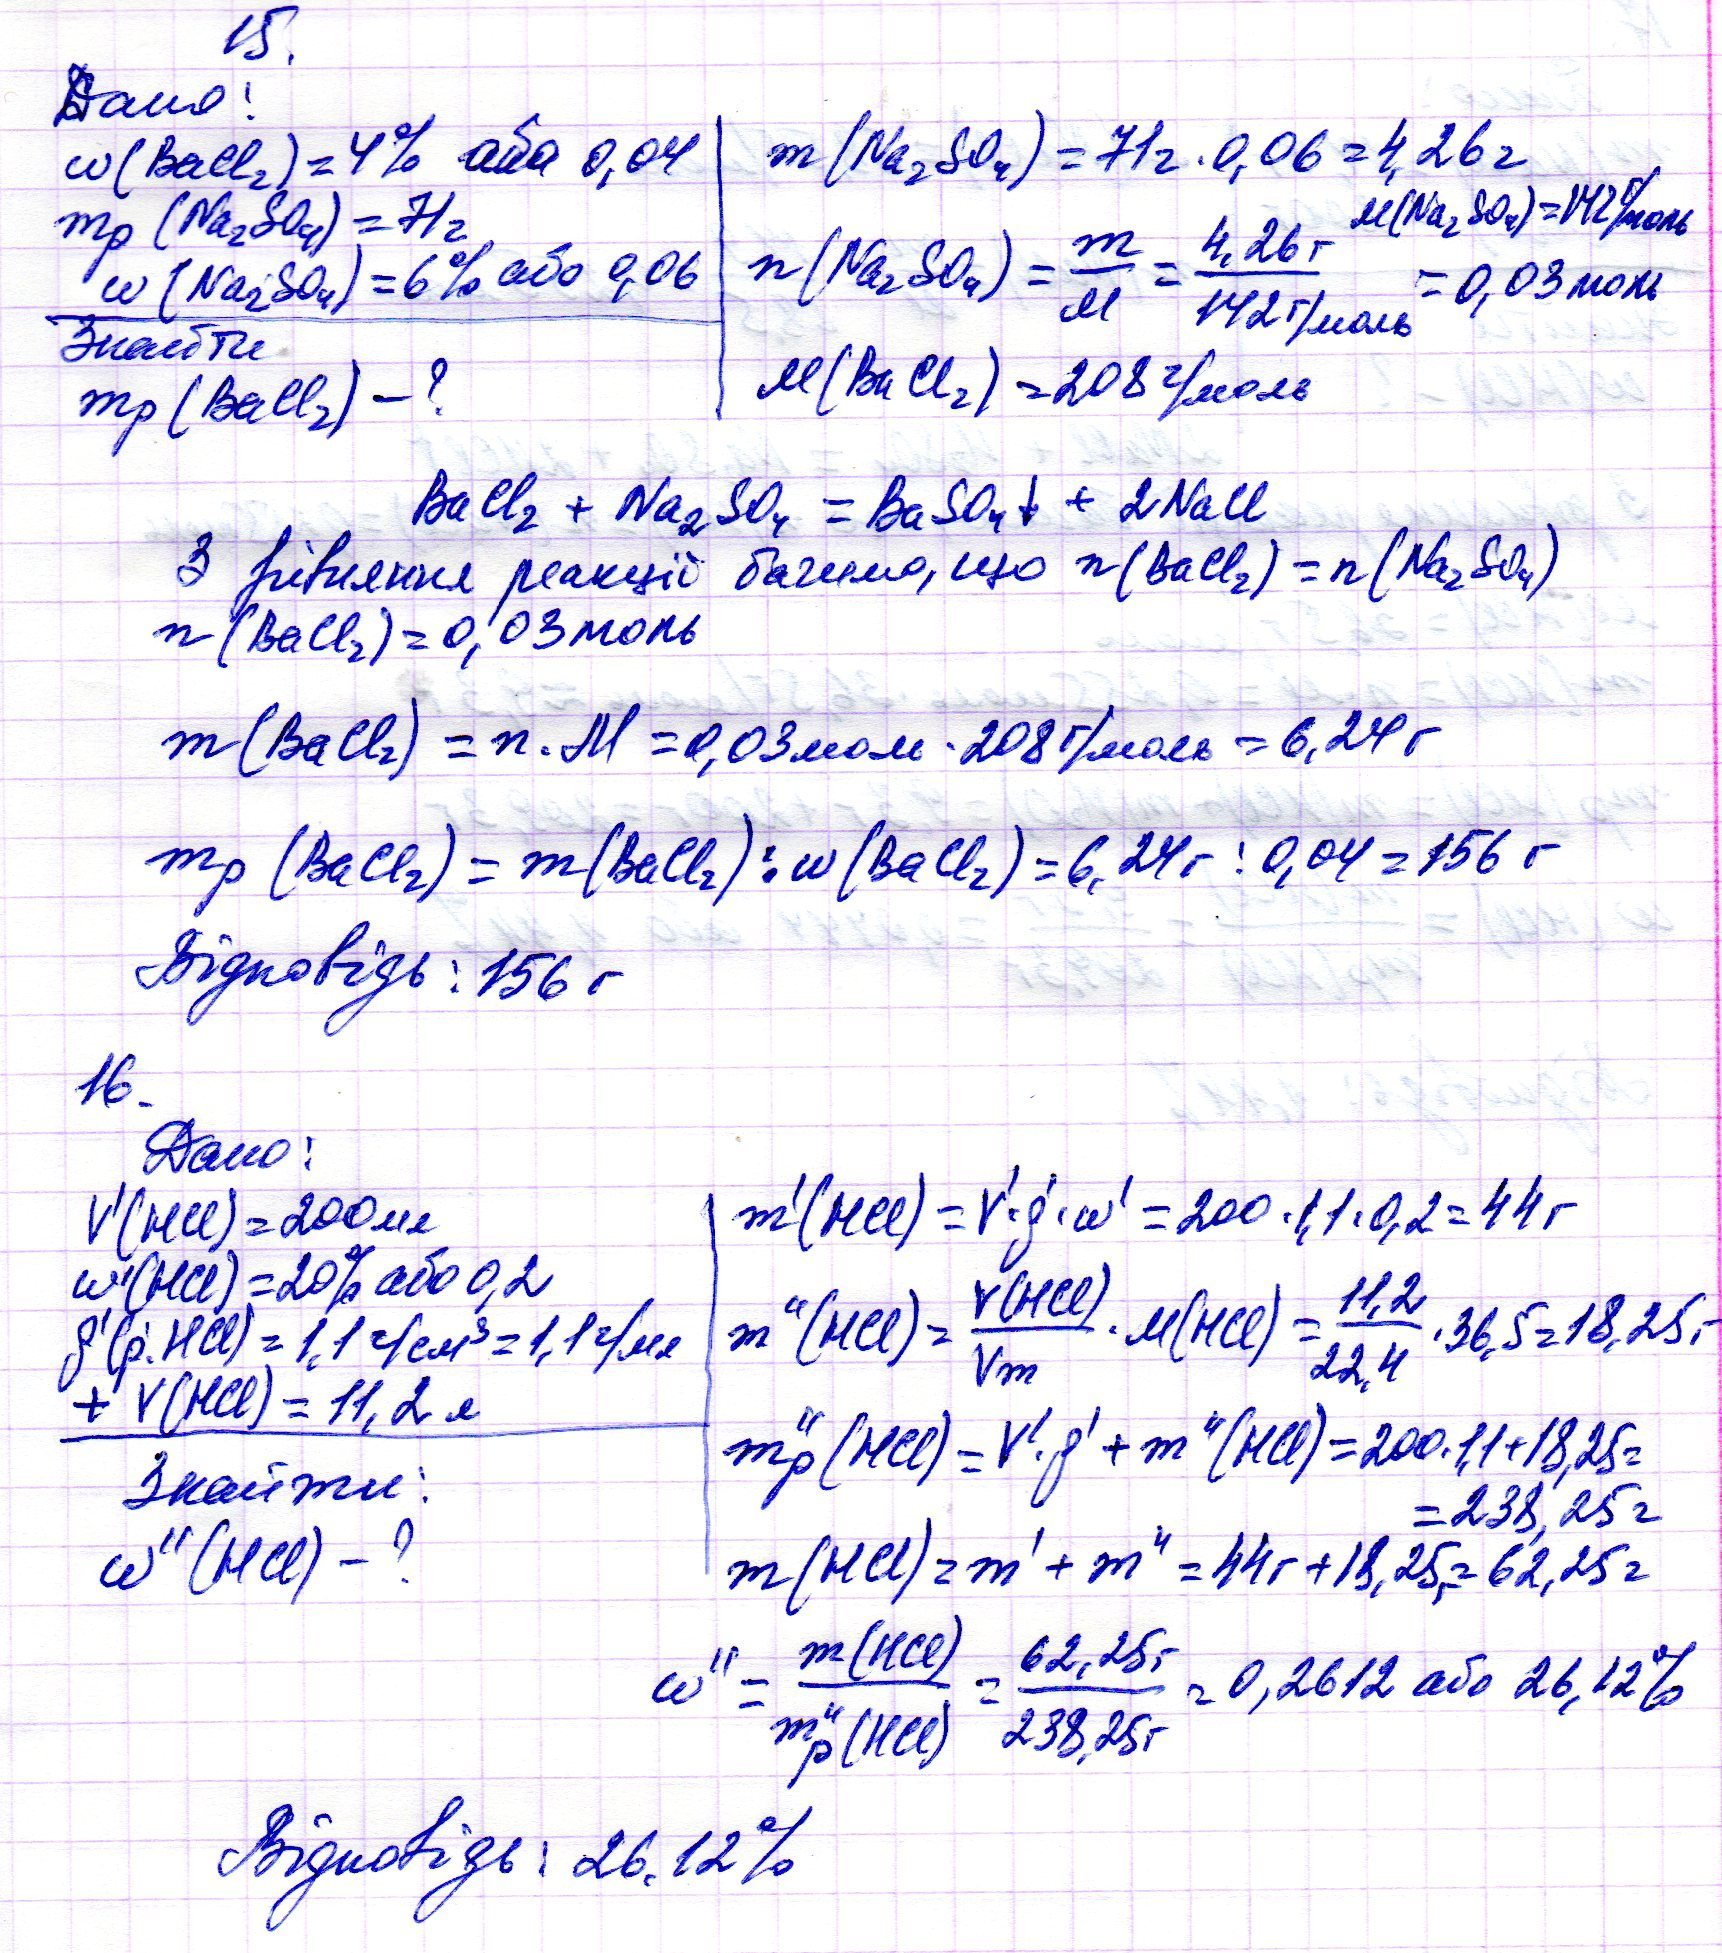 15.
Дано:
ω(BaCl₂)=4% або 0,04
mр(Na₂SO₄)=71г
ω(Na₂SO₄)=6% або 0,06
Знайти
mр(BaCl₂) – ?
m(Na₂SO₄)=71г·0,06=4,26г
M(Na₂SO₄)=142г/моль
n(Na₂SO₄)=m/M=4,26г/142г/моль=0,03моль
M(BaCl₂)=208г/моль
BaCl₂ + Na₂SO₄ = BaSO₄↓ + 2NaCl
З рівняння реакції бачимо, що n(BaCl₂)=n(Na₂SO₄)
n(BaCl₂)=0,03моль
m(BaCl₂)=n·M=0,03моль·208г/моль=6,24г
mр(BaCl₂)=m(BaCl₂):ω(BaCl₂)=6,24г:0,04=156г
Відповідь: 156г
16.
Дано:
V'(HCl)=200мл
ω'(HCl)=20% або 0,2
ρ'(р.HCl)=1,1г/см³=1,1г/мл
+ V(HCl)=11,2л
Знайти:
ω''(HCl) – ?
m'(HCl)=V'·ρ'·ω'=200·1,1·0,2=44г
m''(HCl)=V(HCl)/Vm·M(HCl)=11,2/22,4·36,5=18,25г
mр''(HCl)=V'·ρ'+m''(HCl)=200·1,1+18,25=
=238,25г
m(HCl)=m'+m''=44г+18,25г=62,25г
ω''=m(HCl)/mр''(HCl)=62,25г/238,25г=0,2612 або 26,12%
Відповідь: 26.12%